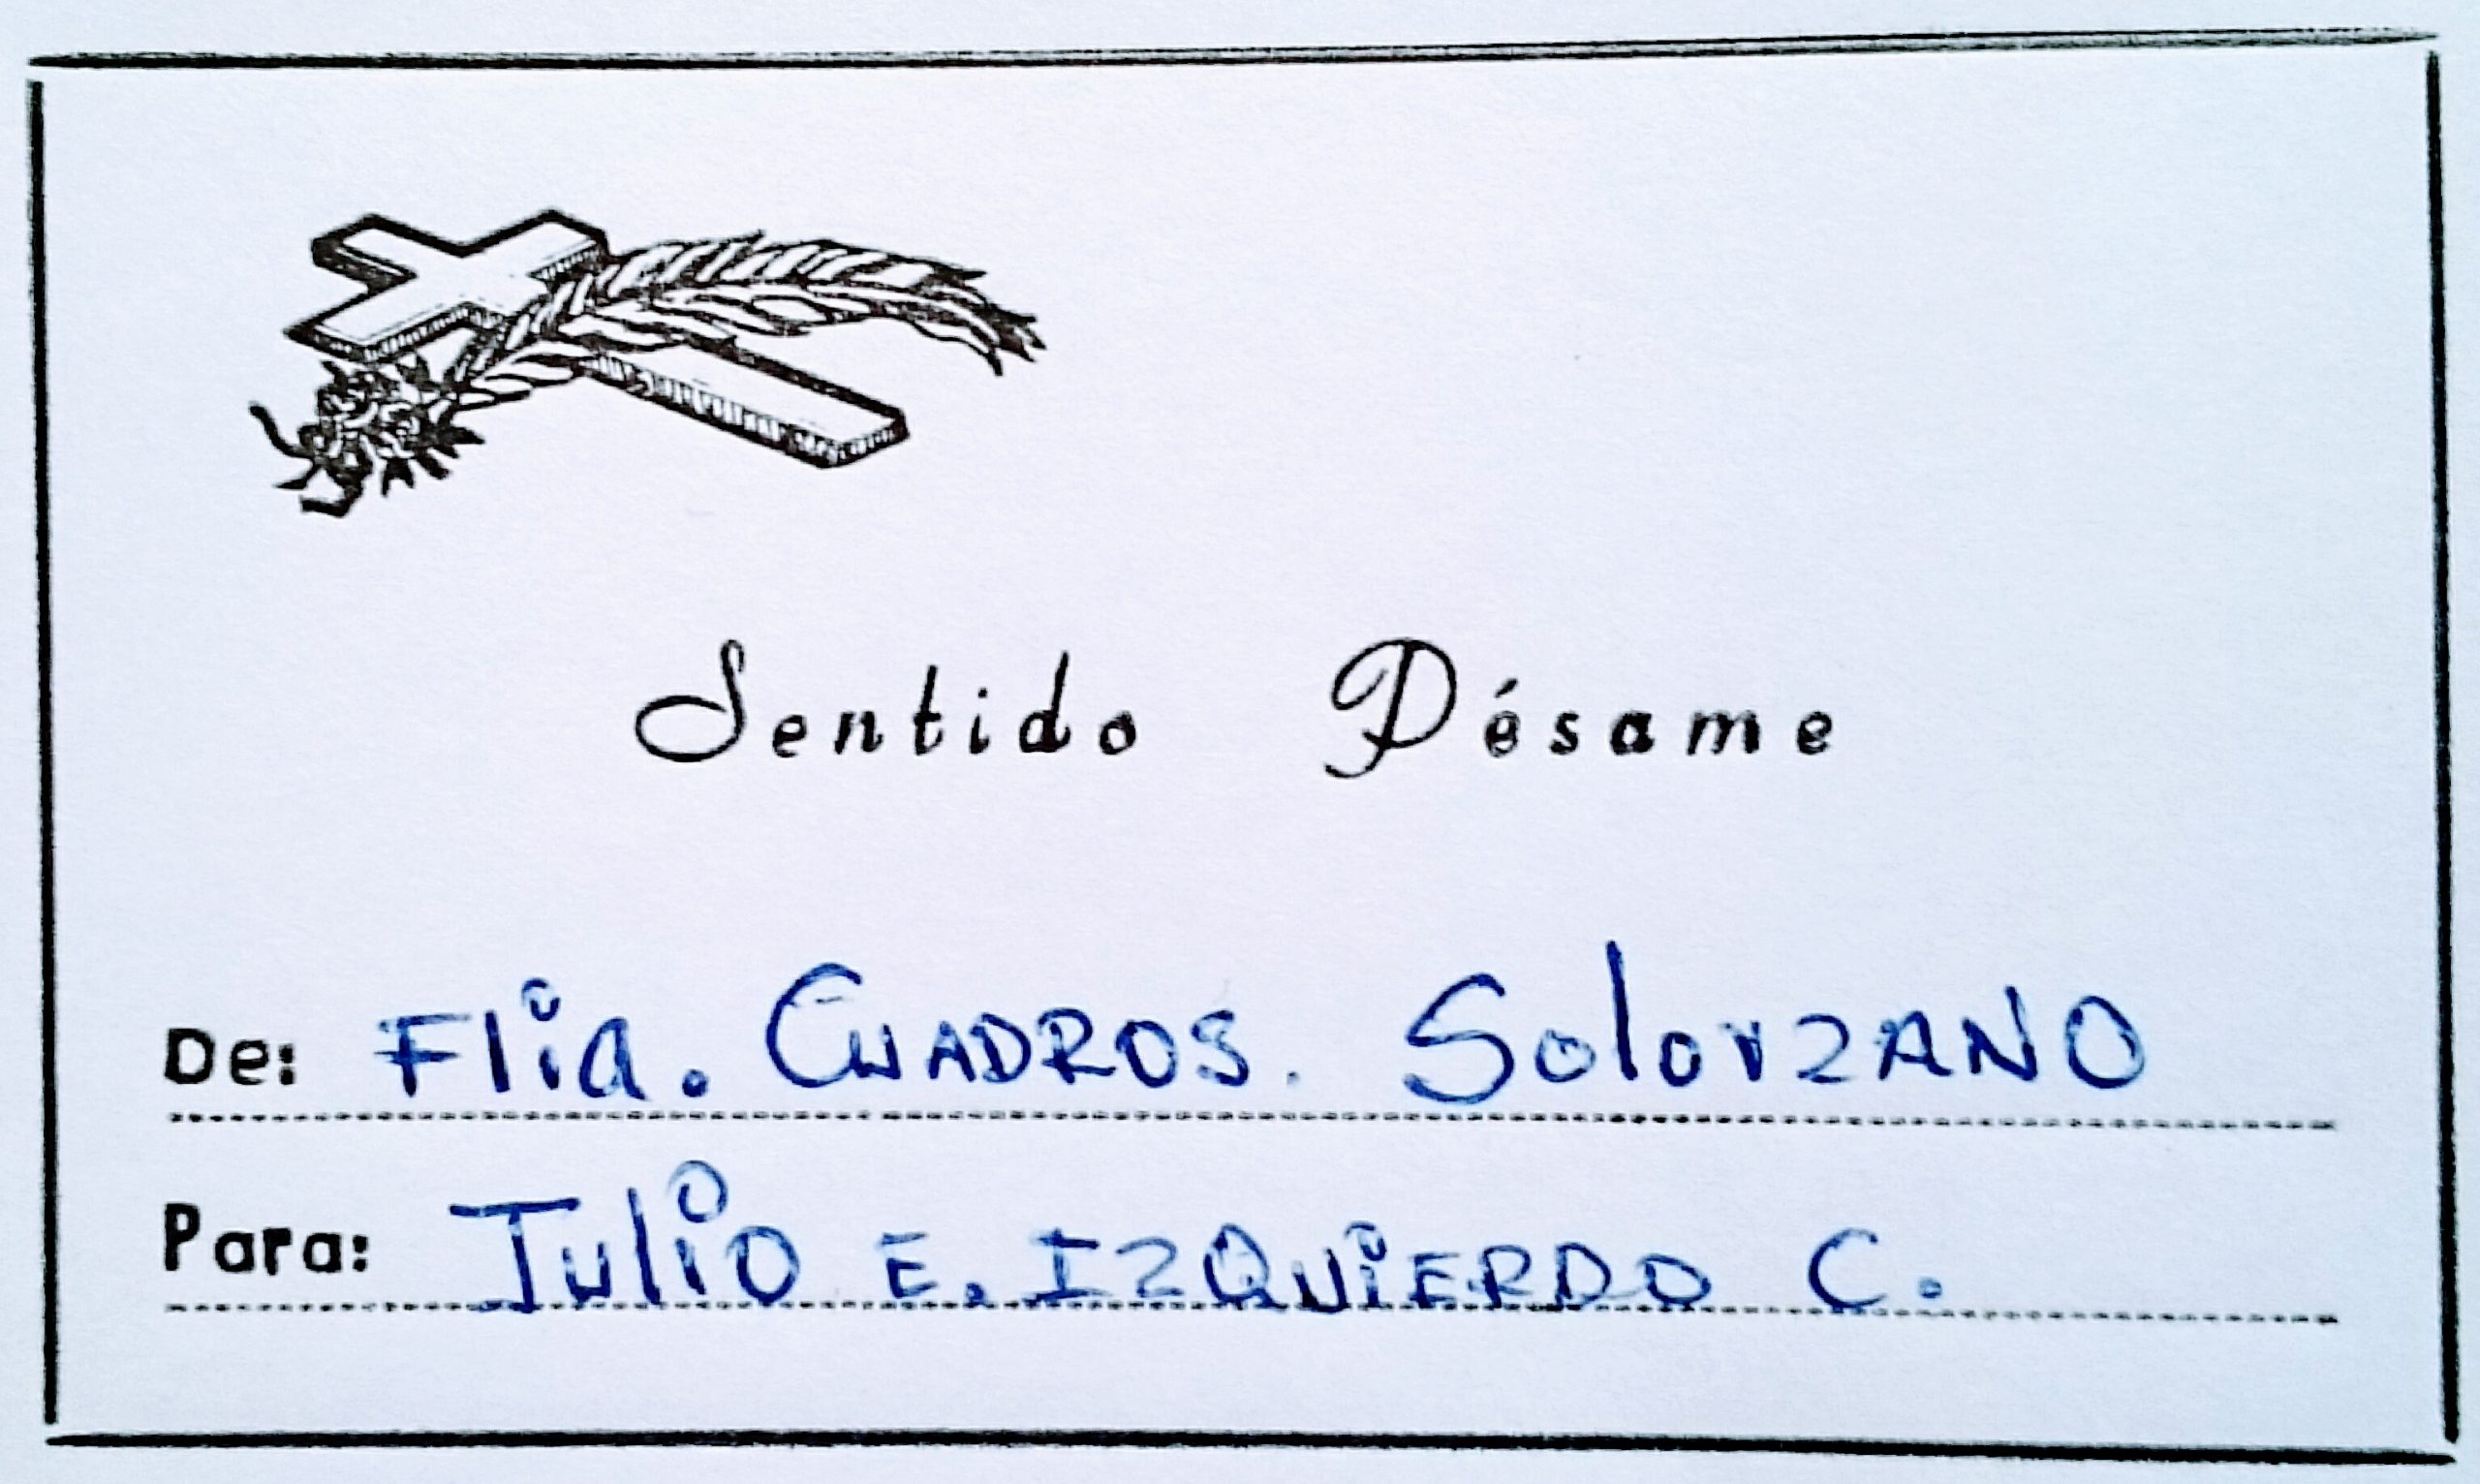 Sentido Pésame
De: Flia. CUADROS. SolorzANO
Para: Julio E. IZQUiERDO C.